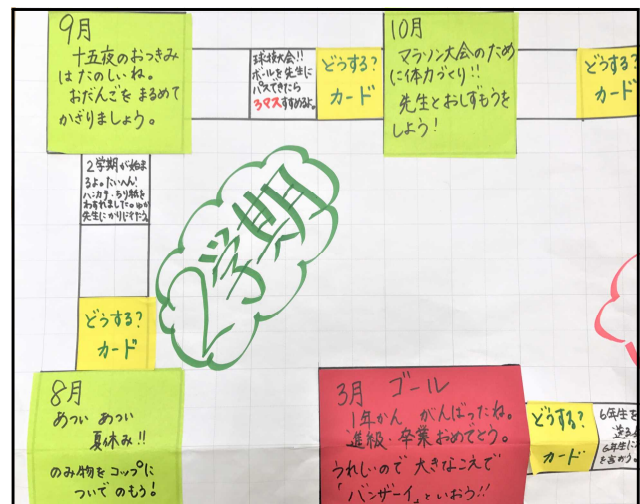 9月
十五夜のおつきみ
はたのしいね。
おだんごをまるめて
かざりましょう。
球技大会!!
ボールを先生に
パスできたら
3マスすすめるよ。
どうする?
カード
10月
マラソン大会のため
に体力づくり!!
先生とおしずもうを
しよう!
どうする?
カード
2学期が始ま
るよ。たいへん!
ハンカチ・ちり紙を
わすれました。
先生にかりにすたう
2学期
どうする?
カード
8月
あつい あつい
夏休み!!
のみ物をコップに
ついでのもう!
3月 ゴール
1年かん がんばったね。
進級・卒業おめでとう。
うれしいので大きなこえで
「バンザーイ」といおう!!
どうする?
カード
6年生を
送る
6年生に
を言おう。